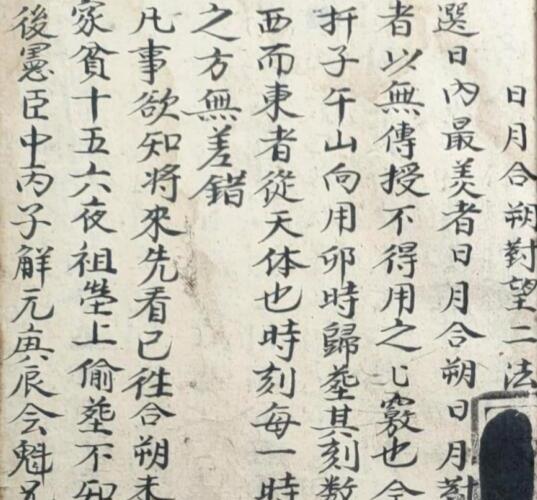 日月合朔對望二法
選日內最羙者日月合朔日月對
者以無傳授不得用之心竅也合
扦子午山向用卯時歸塟其刻数
西而東者從天体也時刻每一時
之方無差錯
凡事欲知将來先看已徃合朔未
家貧十五六夜祖塋上偷塟不知
後憲臣中丙子解元庚辰会魁